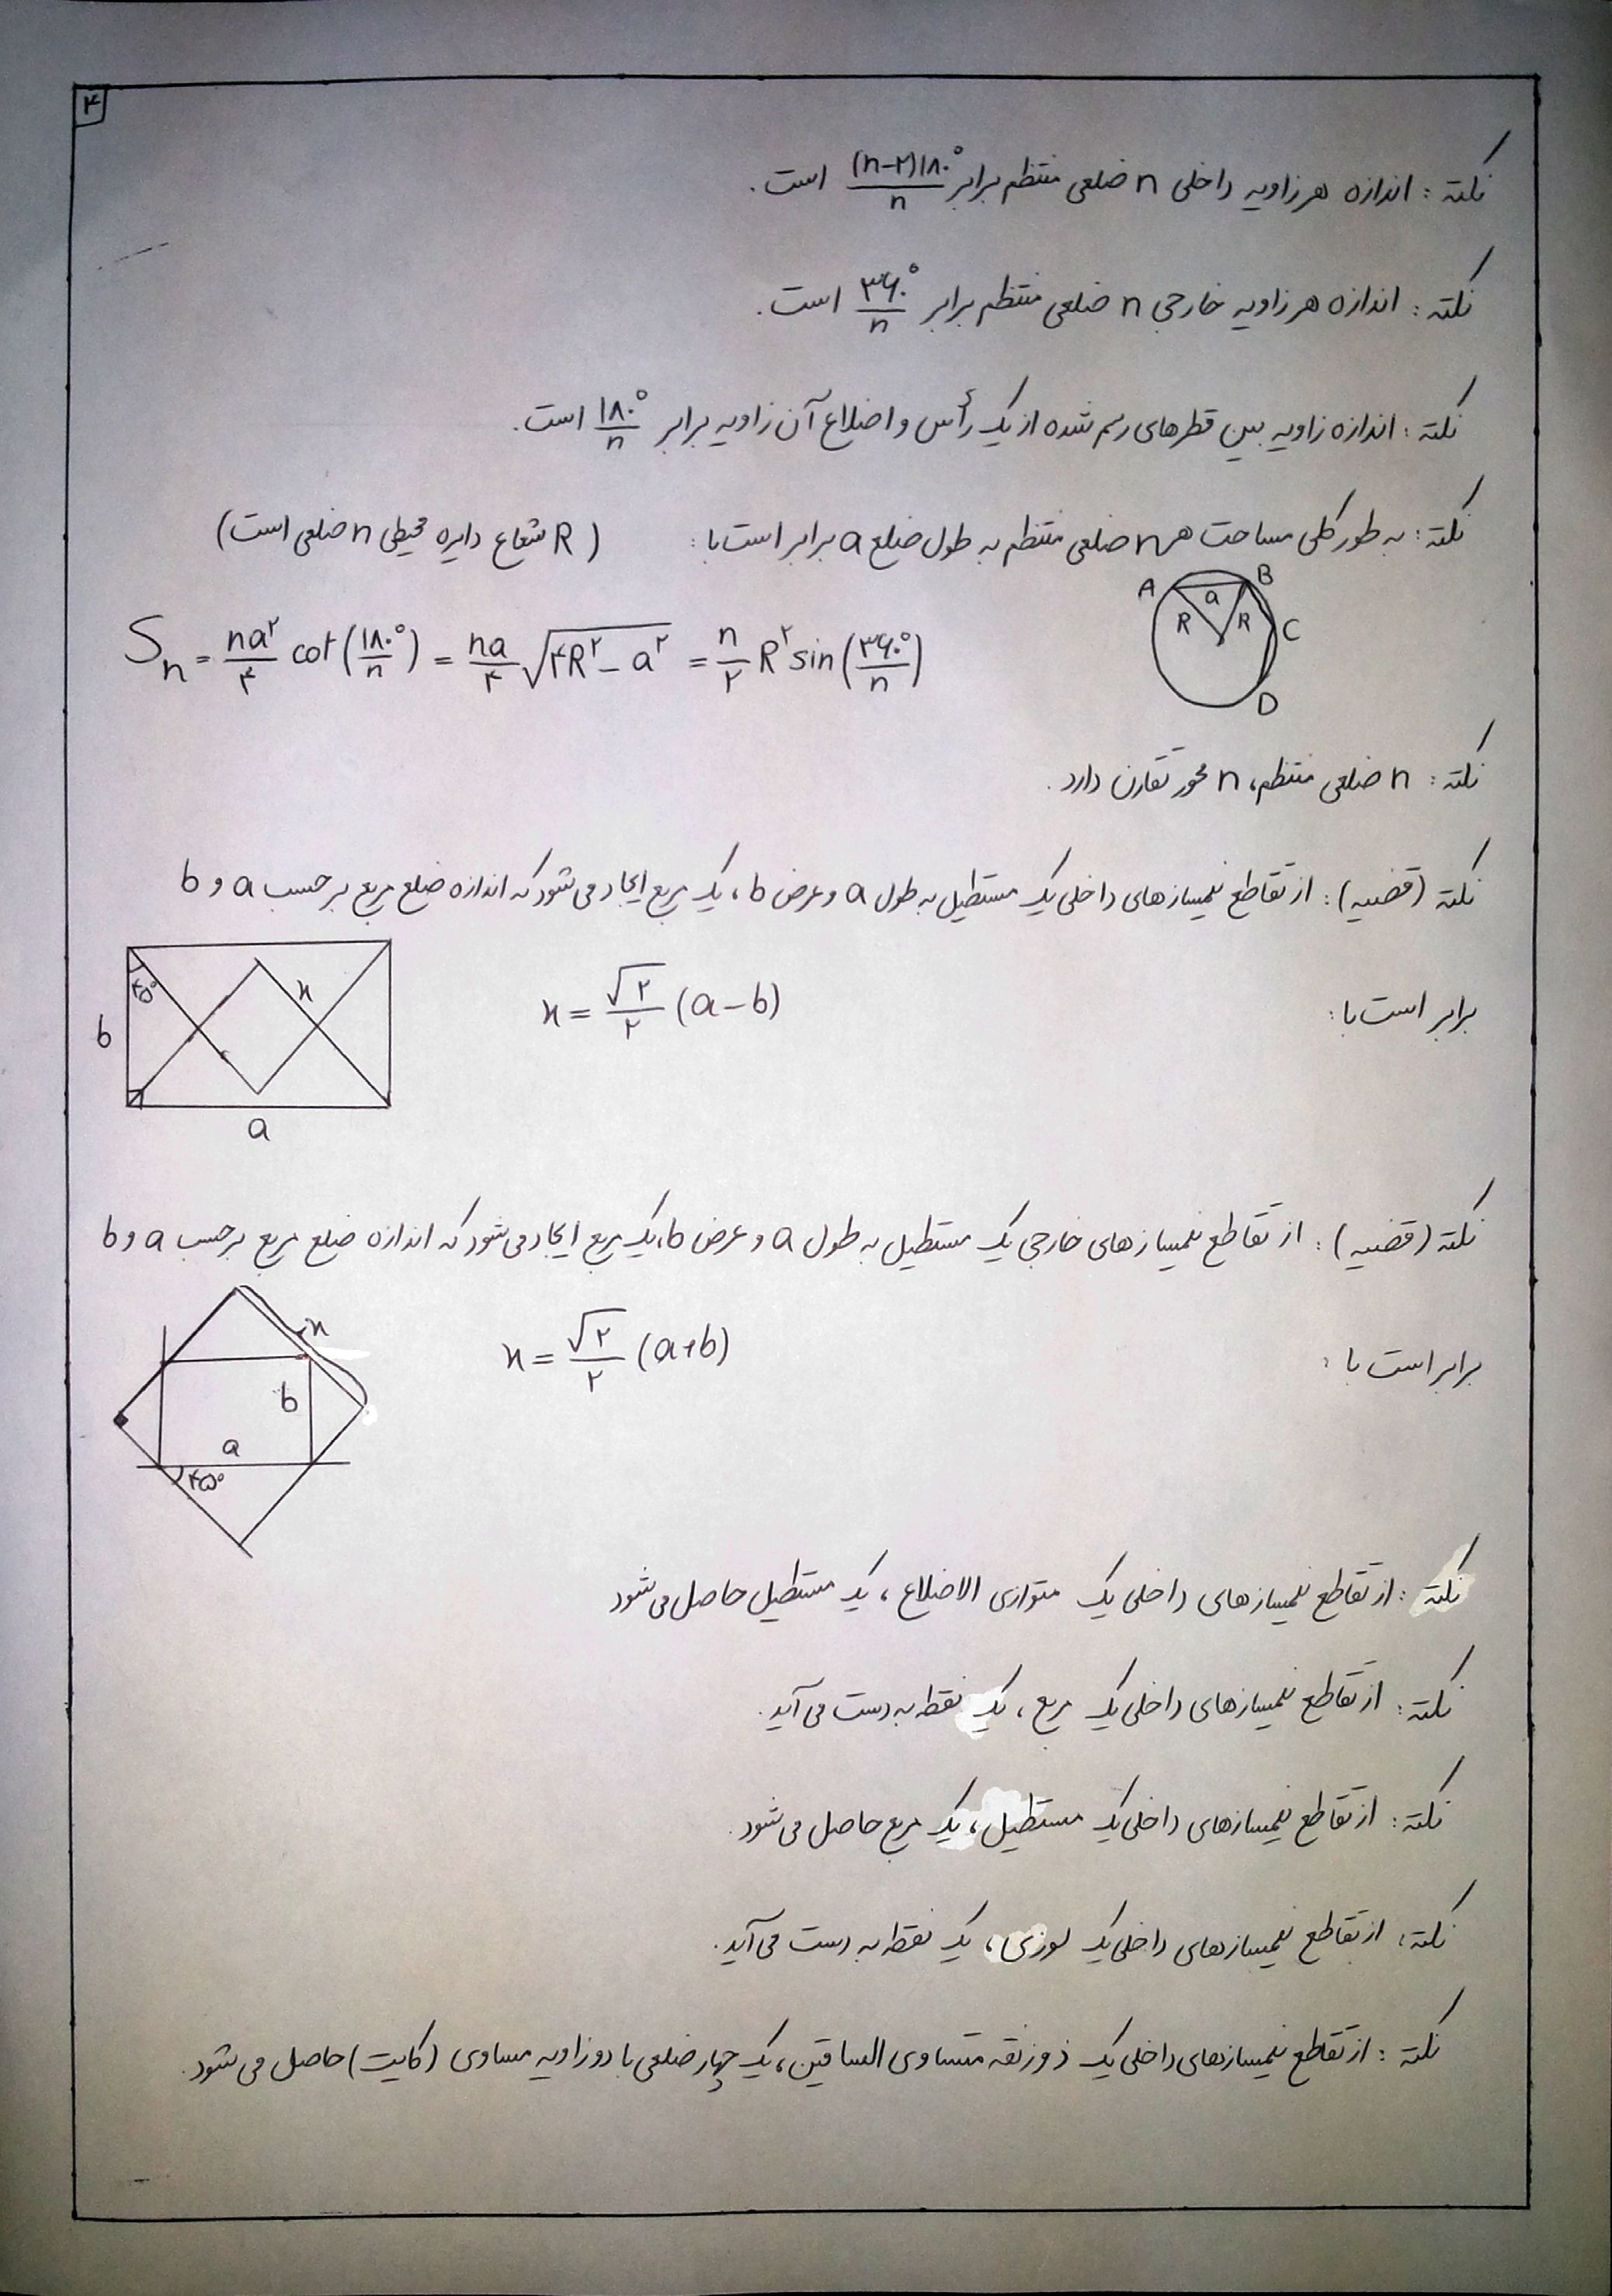 ۴
نکته : اندازه هر زاویه داخلی n ضلعی منتظم برابر (n-۲)۱۸۰°/n است.
نکته : اندازه هر زاویه خارجی n ضلعی منتظم برابر ۳۶۰°/n است.
نکته : اندازه زاویه بین قطرهای رسم شده از یک رأس و اضلاع آن زاویه برابر ۱۸۰°/n است.
نکته : به طور کلی مساحت هر n ضلعی منتظم به طول ضلع a برابر است با : (R شعاع دایره محیطی n ضلعی است)
A B a R R C D
Sn = na²/۴ cot(۱۸۰°/n) = na/۴ √(۴R²-a²) = n/۲ R² sin(۳۶۰°/n)
نکته : n ضلعی منتظم، n محور تقارن دارد.
نکته (قضیه) : از تقاطع نیمسازهای داخلی یک مستطیل به طول a و عرض b، یک مربع ایجاد می‌شود که اندازه ضلع مربع برحسب a و b
برابر است با : x = √۲/۲ (a-b)
۴۵° x b a
نکته (قضیه) : از تقاطع نیمسازهای خارجی یک مستطیل به طول a و عرض b، یک مربع ایجاد می‌شود که اندازه ضلع مربع برحسب a و b
برابر است با : x = √۲/۲ (a+b)
x b a ۴۵°
نکته : از تقاطع نیمسازهای داخلی یک متوازی الاضلاع، یک مستطیل حاصل می‌شود
نکته : از تقاطع نیمسازهای داخلی یک مربع، یک نقطه به دست می‌آید.
نکته : از تقاطع نیمسازهای داخلی یک مستطیل، یک مربع حاصل می‌شود.
نکته : از تقاطع نیمسازهای داخلی یک لوزی، یک نقطه به دست می‌آید.
نکته : از تقاطع نیمسازهای داخلی یک ذوزنقه متساوی الساقین، یک چهارضلعی با دو زاویه مساوی (کایت) حاصل می‌شود.